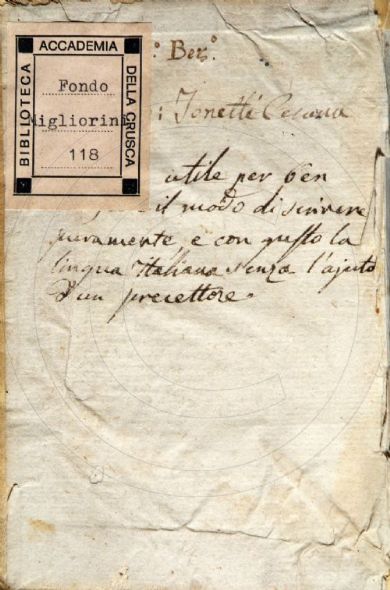 BIBLIOTECA
ACCADEMIA
DELLA CRUSCA
Fondo
Migliorini
118
° Ber.°
: Tonetti Cesana
utile per ben
il modo di scrivere
puramente, e con gusto la
lingua Italiana senza l'ajuto
d'un precettore.